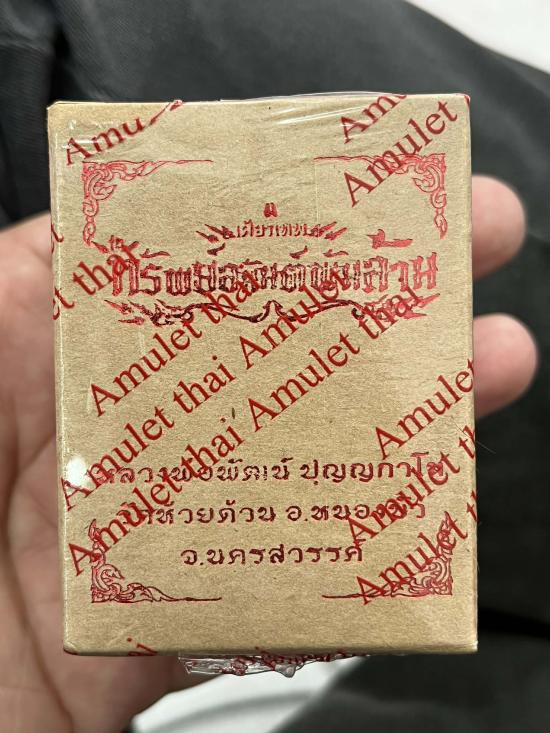 เศียรเทพ
ทรัพย์อนันต์พันล้าน
หลวงพ่อพัฒน์ ปุญญกาโม
วัดห้วยด้วน อ.หนองบัว
จ.นครสวรรค์
Amulet
Amulet
Amulet thai Amulet thai
Amulet thai Amulet thai
Amulet thai
Amulet
Amulet thai
Amulet